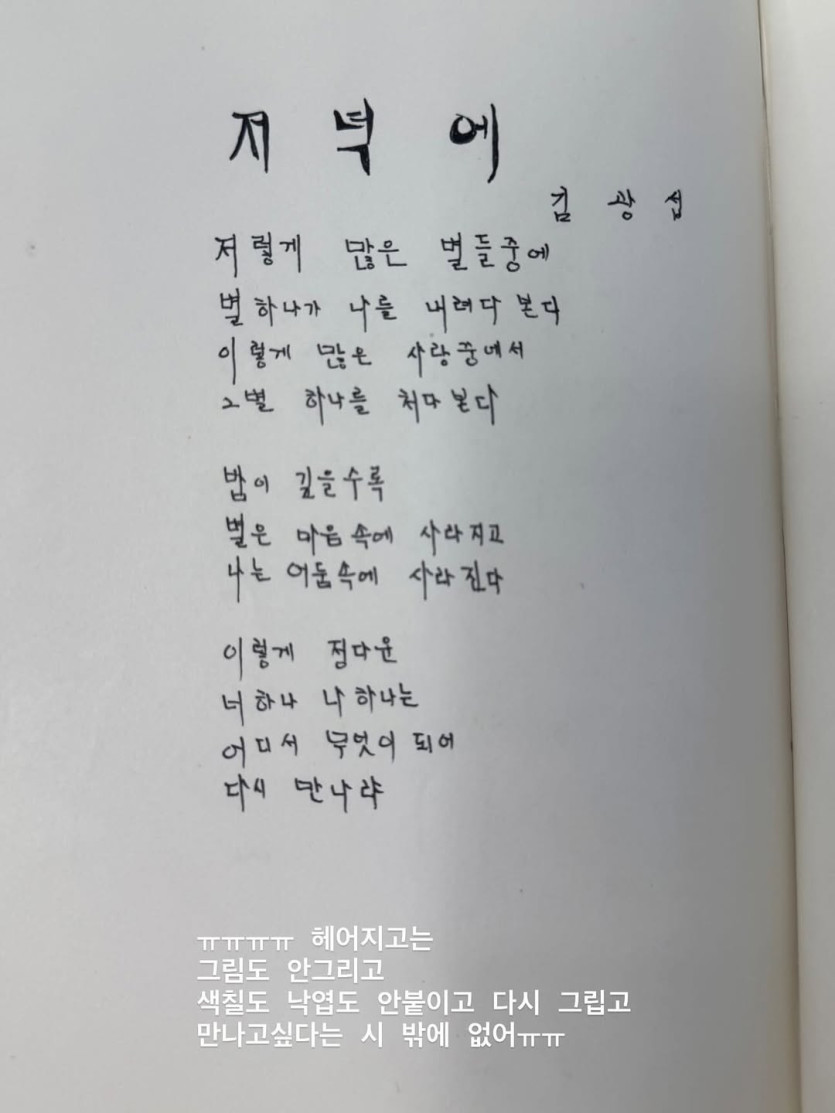 저녁에
김광섭
저렇게 많은 별들중에
별 하나가 나를 내려다 본다
이렇게 많은 사람중에서
그별 하나를 처다본다
밤이 깊을수록
별은 마음속에 사라지고
나는 어둠속에 사라진다
이렇게 정다운
너하나 나하나는
어디서 무엇이되어
다시 만나랴
ㅠㅠㅠㅠ 헤어지고는
그림도 안그리고
색칠도 낙엽도 안붙이고 다시 그립고
만나고싶다는 시 밖에 없어ㅠㅠ